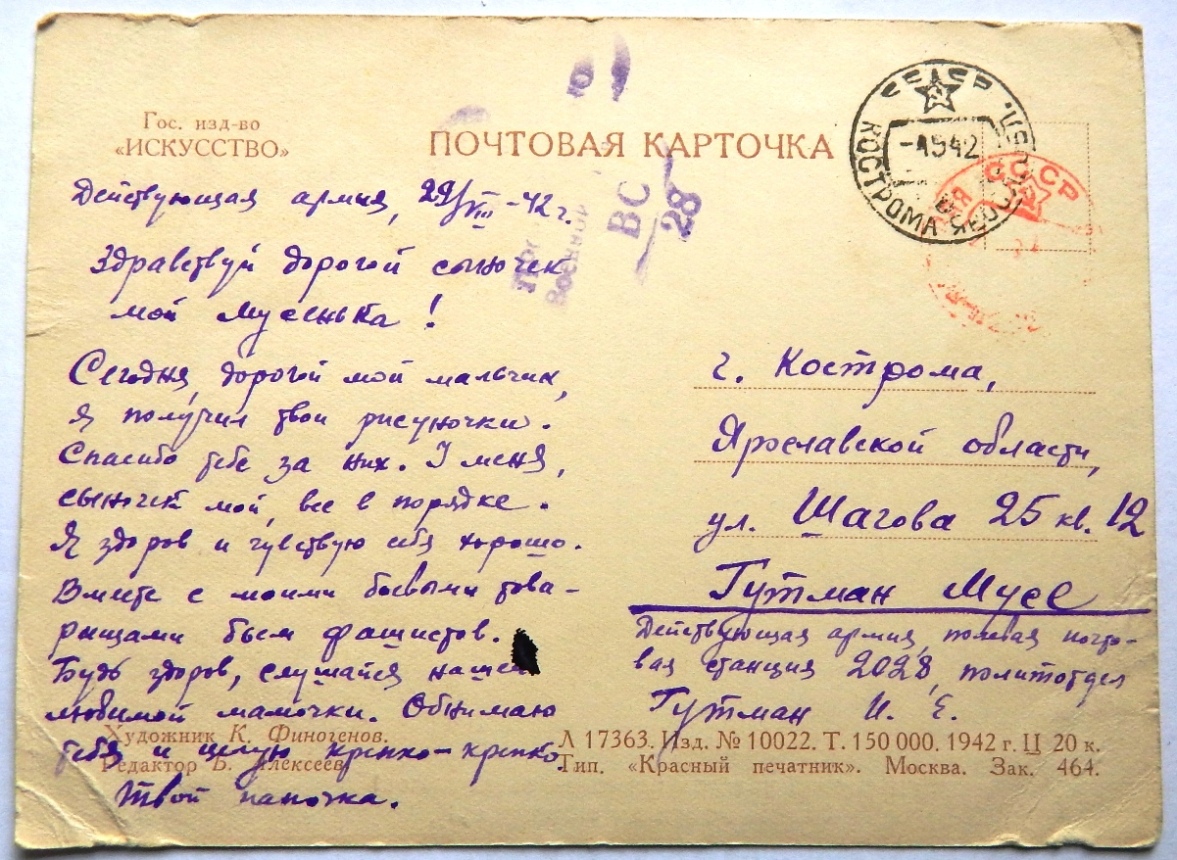 Гос. изд-во
«ИСКУССТВО»
ПОЧТОВАЯ КАРТОЧКА
СССР
КОСТРОМА
-4 9 42
СССР
ВС
28
Военной
Действующая армия, 29/VIII-42 г.
Здравствуй дорогой сыночек
мой Мусенька!
Сегодня, дорогой мой мальчик,
я получил твои рисуночки.
Спасибо тебе за них. У меня,
сыночек мой, все в порядке.
Я здоров и чувствую себя хорошо.
Вместе с моими боевыми това-
рищами бьем фашистов.
Будь здоров, слушайся нашей
любимой мамочки. Обнимаю
тебя и целую крепко-крепко.
Твой папочка.
г. Кострома,
Ярославской области,
ул. Шагова 25 кв. 12
Гутман Мусе
Действующая армия, полевая почто-
вая станция 2028, политотдел
Гутман И. Е.
Художник К. Финогенов.
Редактор Б. Алексеев.
Л 17363. Изд. № 10022. Т. 150 000. 1942 г. Ц 20 к.
Тип. «Красный печатник». Москва. Зак. 464.